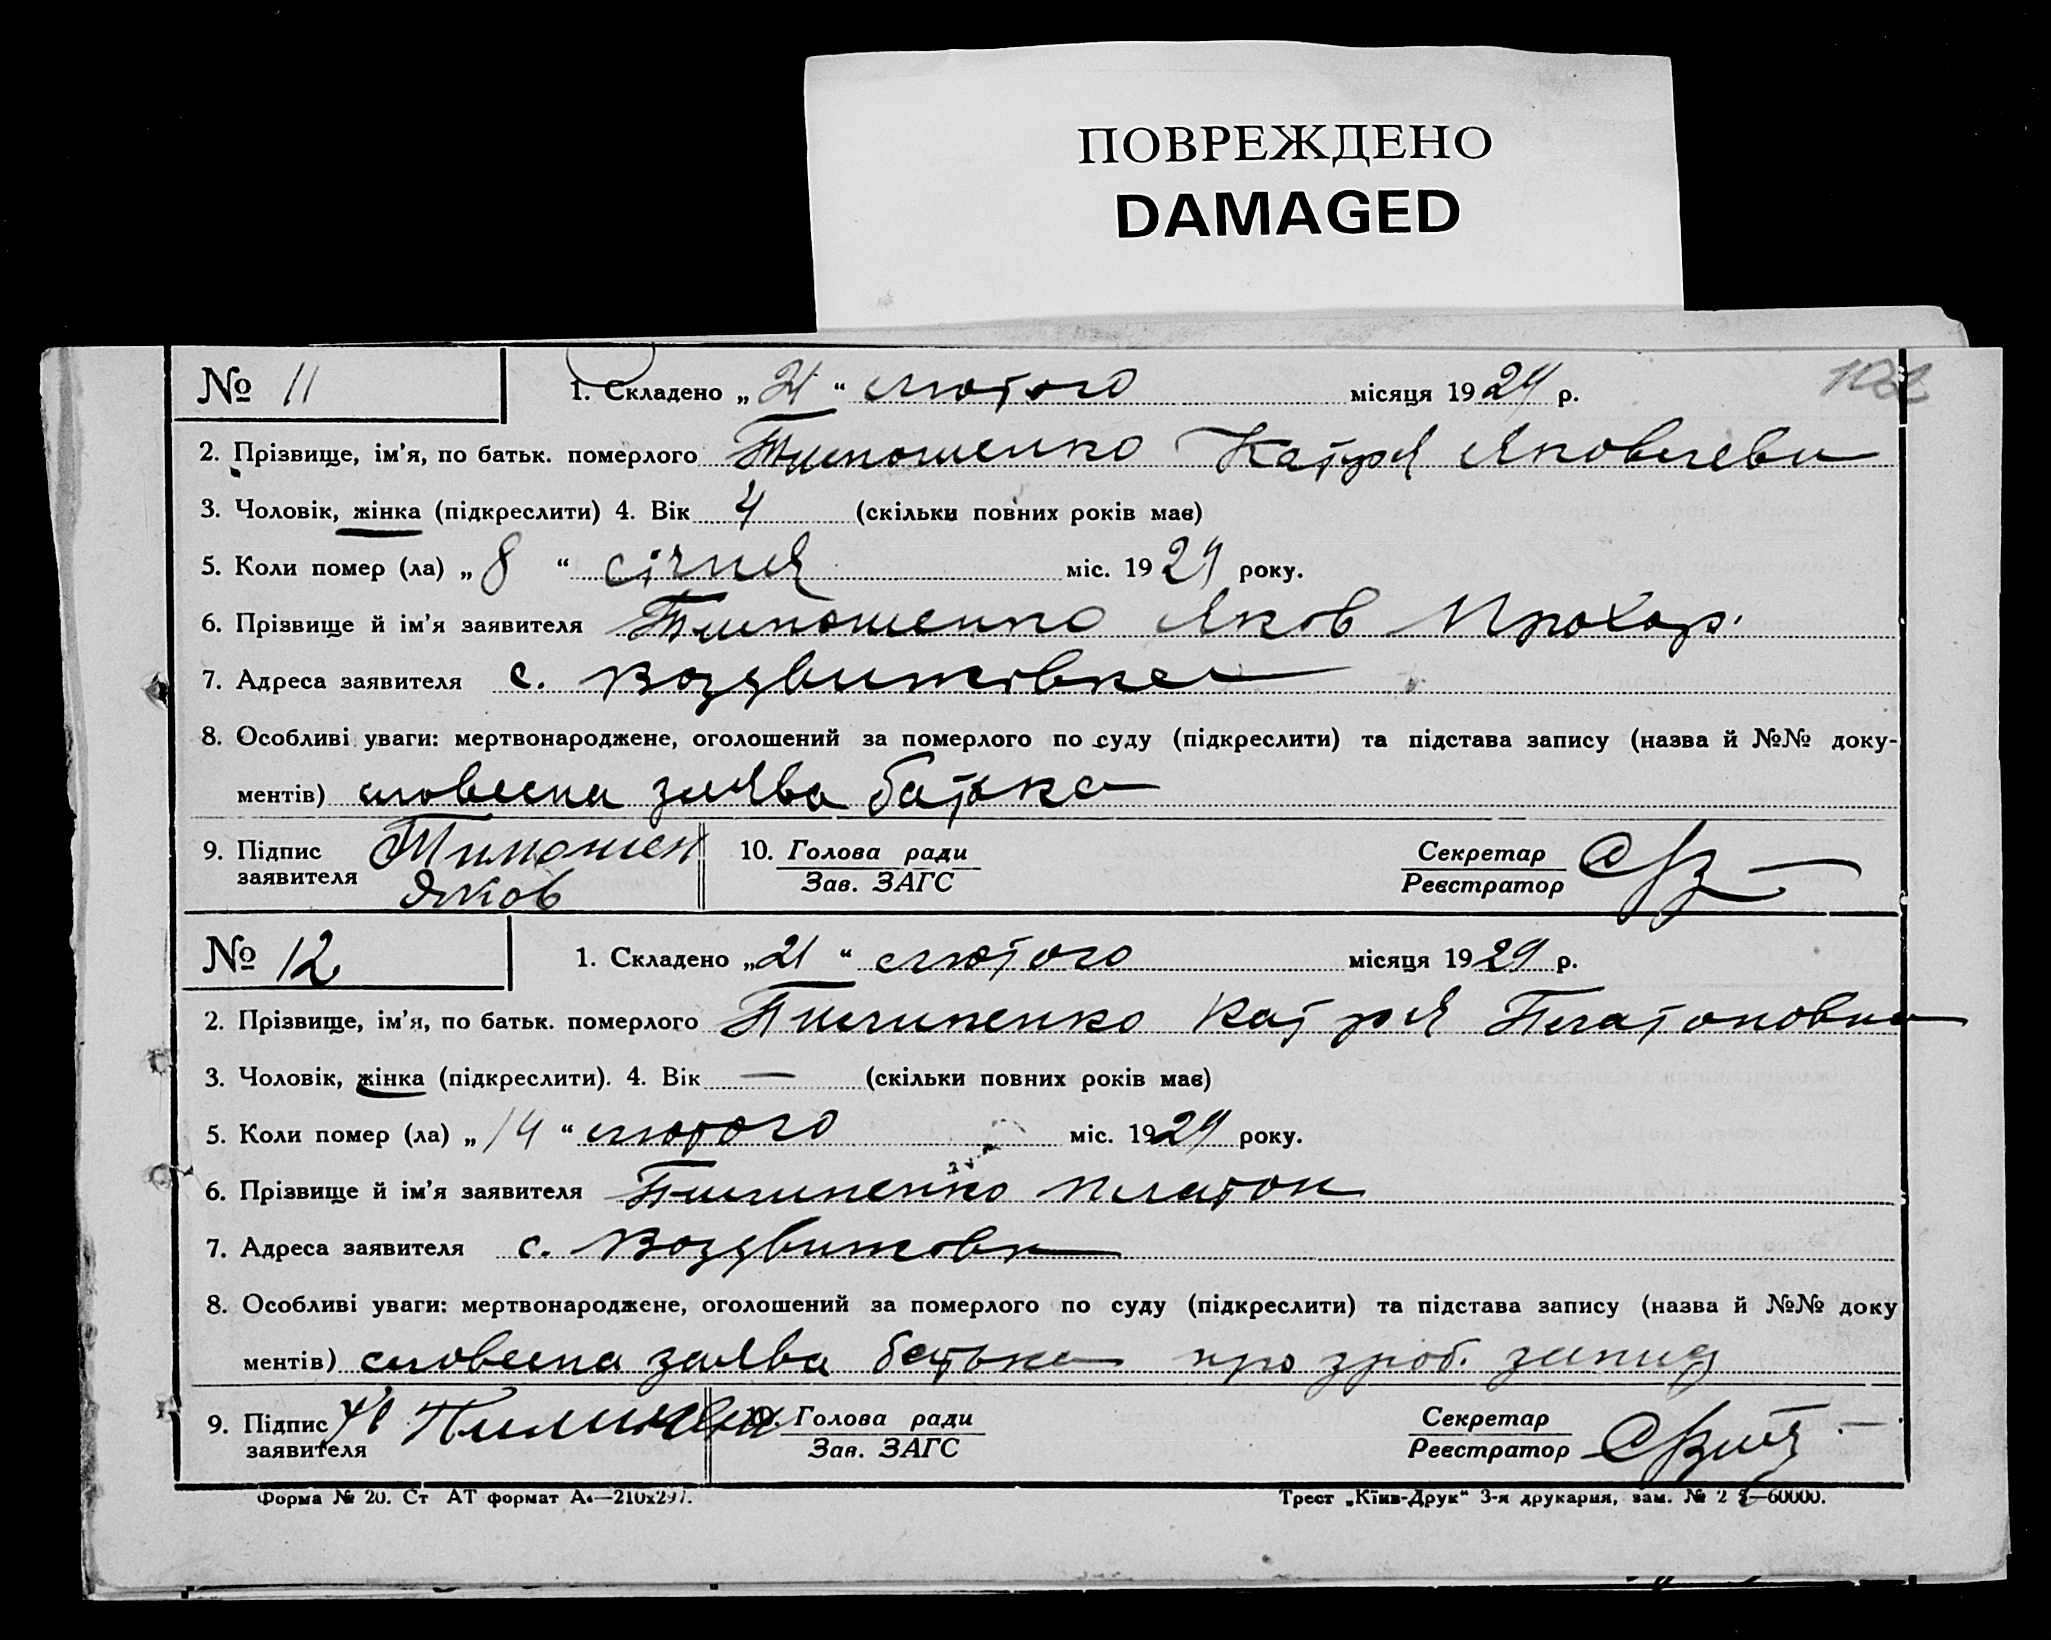 ПОВРЕЖДЕНО
DAMAGED
102
№ 11 1. Складено „21“ лютого місяця 1929 р.
2. Прізвище, ім'я, по батьк. померлого Тимошенко Катря Яковлевн
3. Чоловік, жінка (підкреслити) 4. Вік 4 (скільки повних років має)
5. Коли помер (ла) „8“ січня міс. 1929 року.
6. Прізвище й ім'я заявителя Тимошенко Яков Прохор.
7. Адреса заявителя с. Воздвижовка
8. Особливі уваги: мертвонароджене, оголошений за померлого по суду (підкреслити) та підстава запису (назва й №№ доку-
ментів) словесна заява батька
9. Підпис заявителя Тимошен Яков 10. Голова ради Зав. ЗАГС Секретар Реєстратор
№ 12 1. Складено „21“ лютого місяця 1929 р.
2. Прізвище, ім'я, по батьк. померлого Пилипенко Катря Платоновна
3. Чоловік, жінка (підкреслити). 4. Вік — (скільки повних років має)
5. Коли помер (ла) „14“ лютого міс. 1929 року.
6. Прізвище й ім'я заявителя Пилипенко Платон
7. Адреса заявителя с. Воздвижовк
8. Особливі уваги: мертвонароджене, оголошений за померлого по суду (підкреслити) та підстава запису (назва й №№ доку
ментів) словесна заява батька про зроб. запис
9. Підпис заявителя 10. Голова ради Зав. ЗАГС Секретар Реєстратор
Форма № 20. Ст АТ формат А4—210х297. Трест „Київ-Друк“ 3-я друкарня, зам. № 2 —60000.